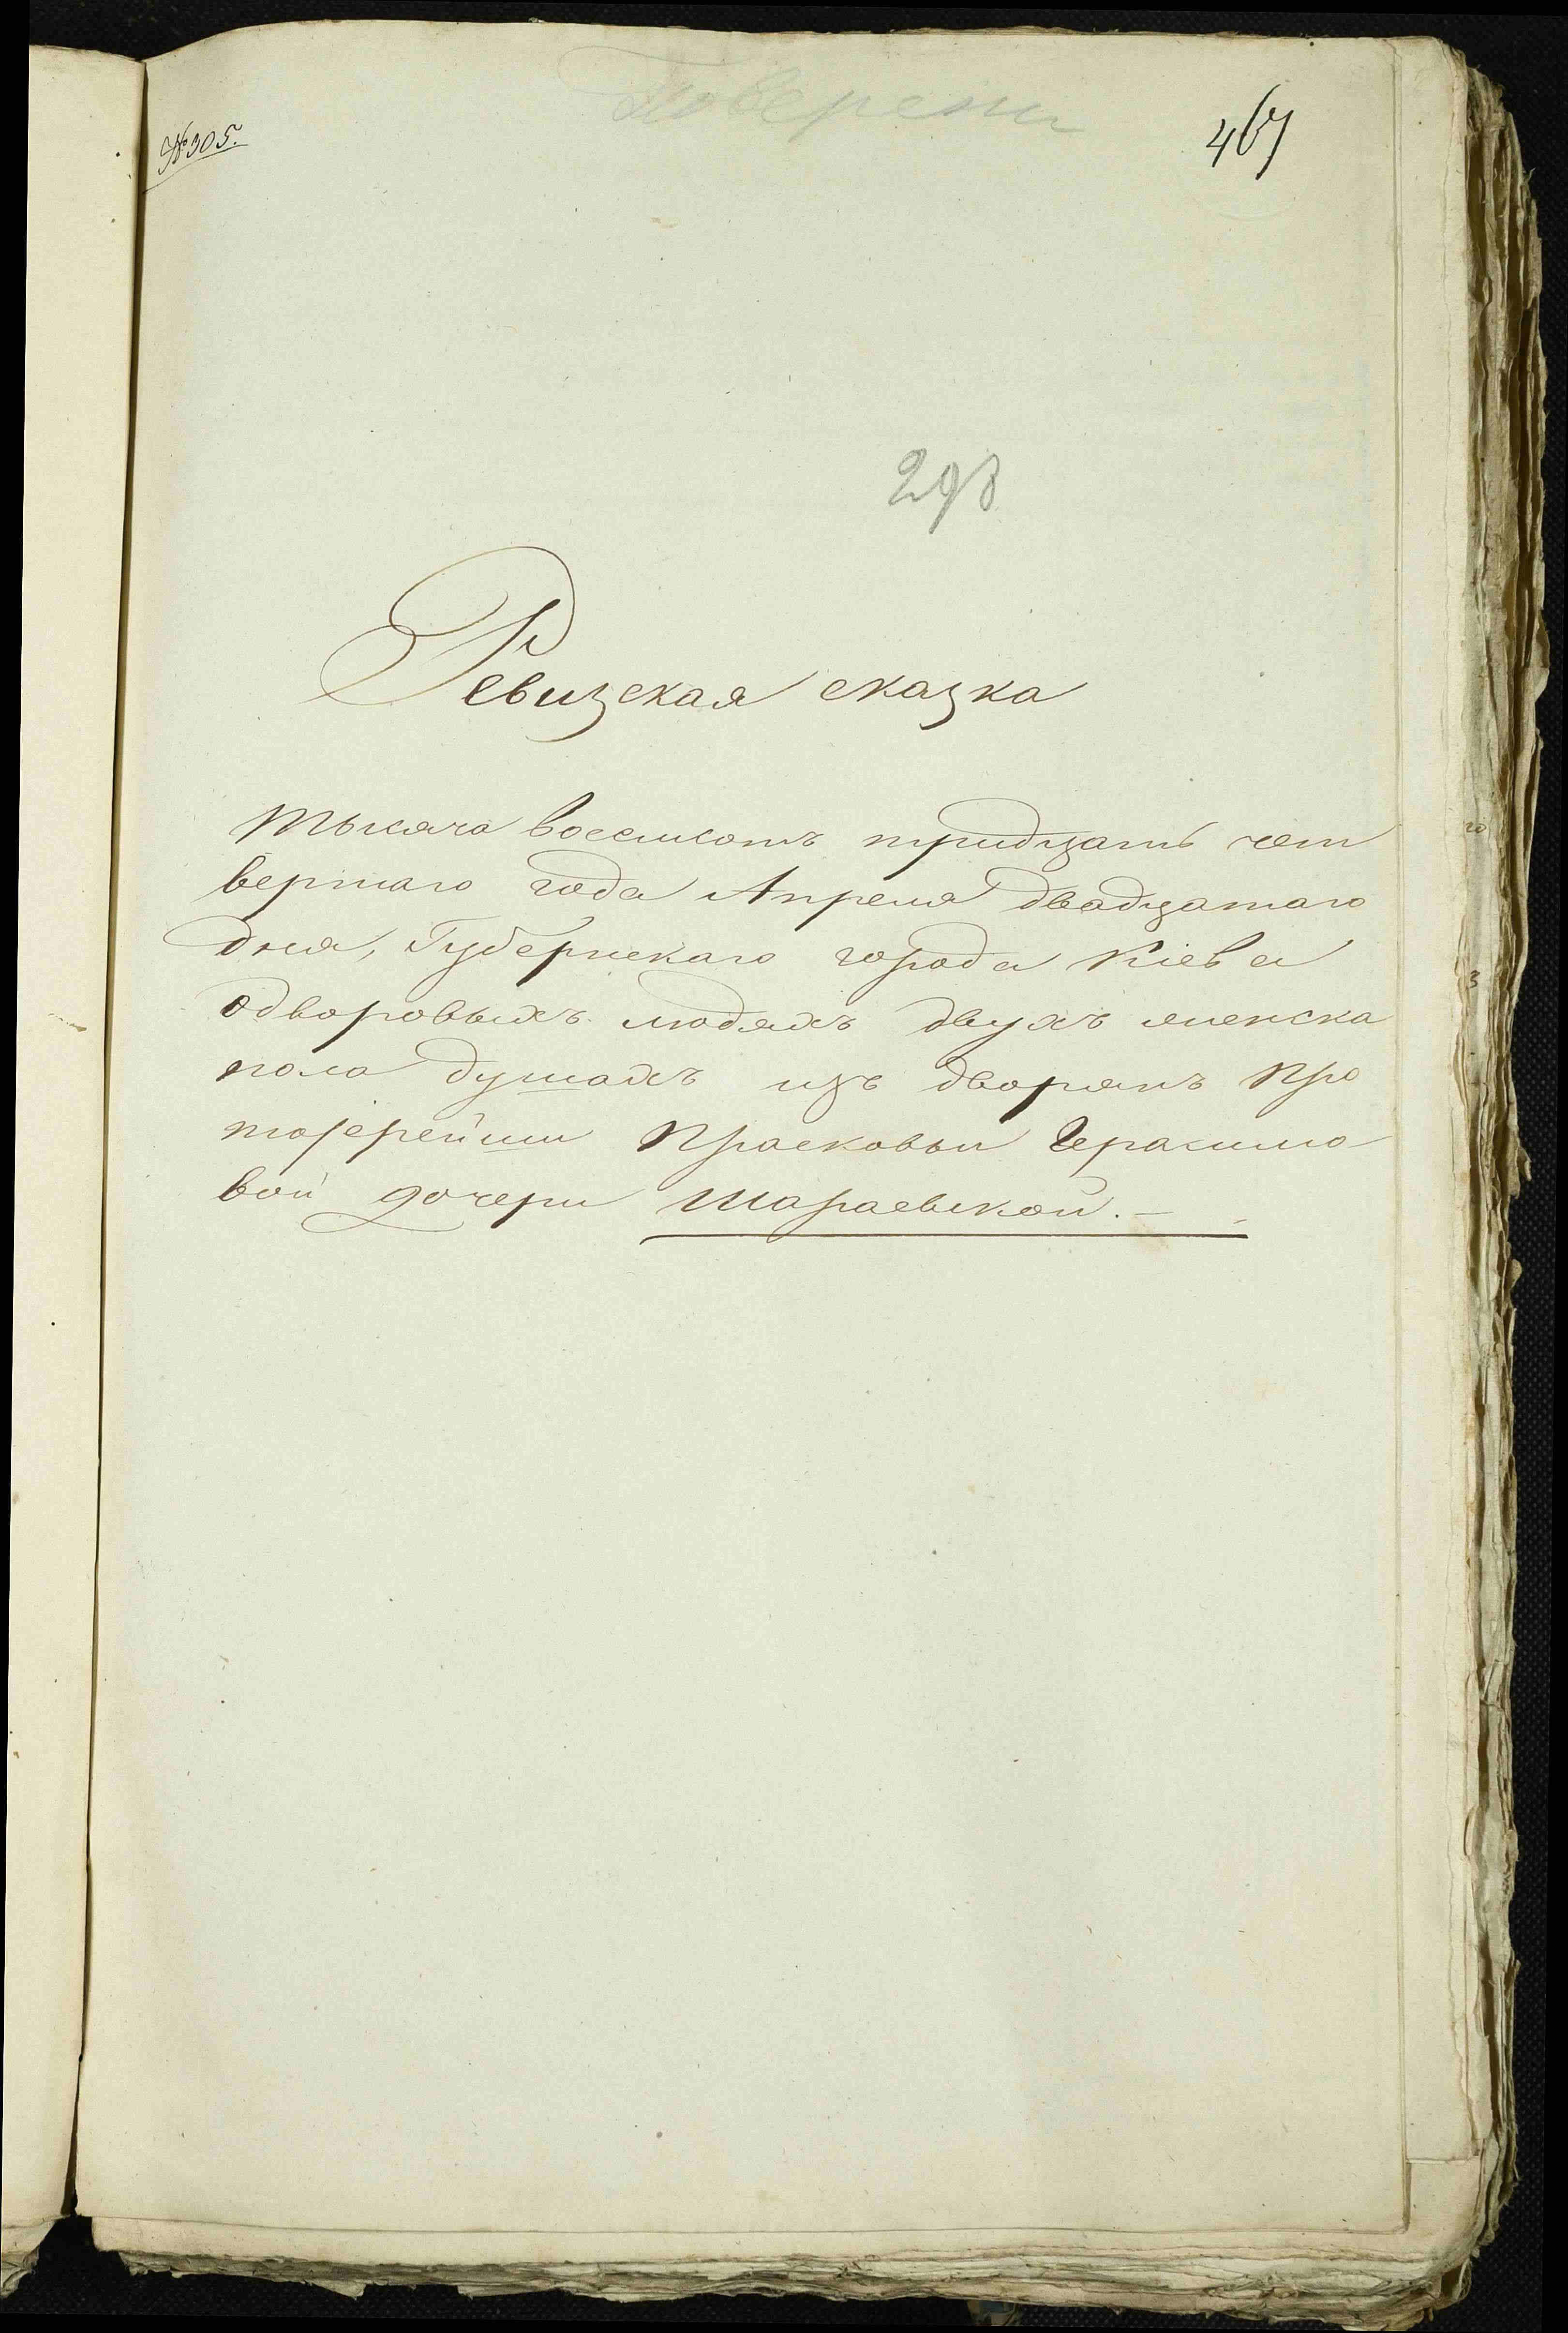 Поверени
№305.
467
298
Ревизская сказка
тысяча восемсотъ тридцать чет
вертаго года Апреля двадцатаго
дня, Губернскаго города Кіева
одворовыхъ людяхъ двухъ женска
пола душахъ изъ дворянъ Про
тоіерейши Прасковьи Герасимо
вой дочери Шараевской. —